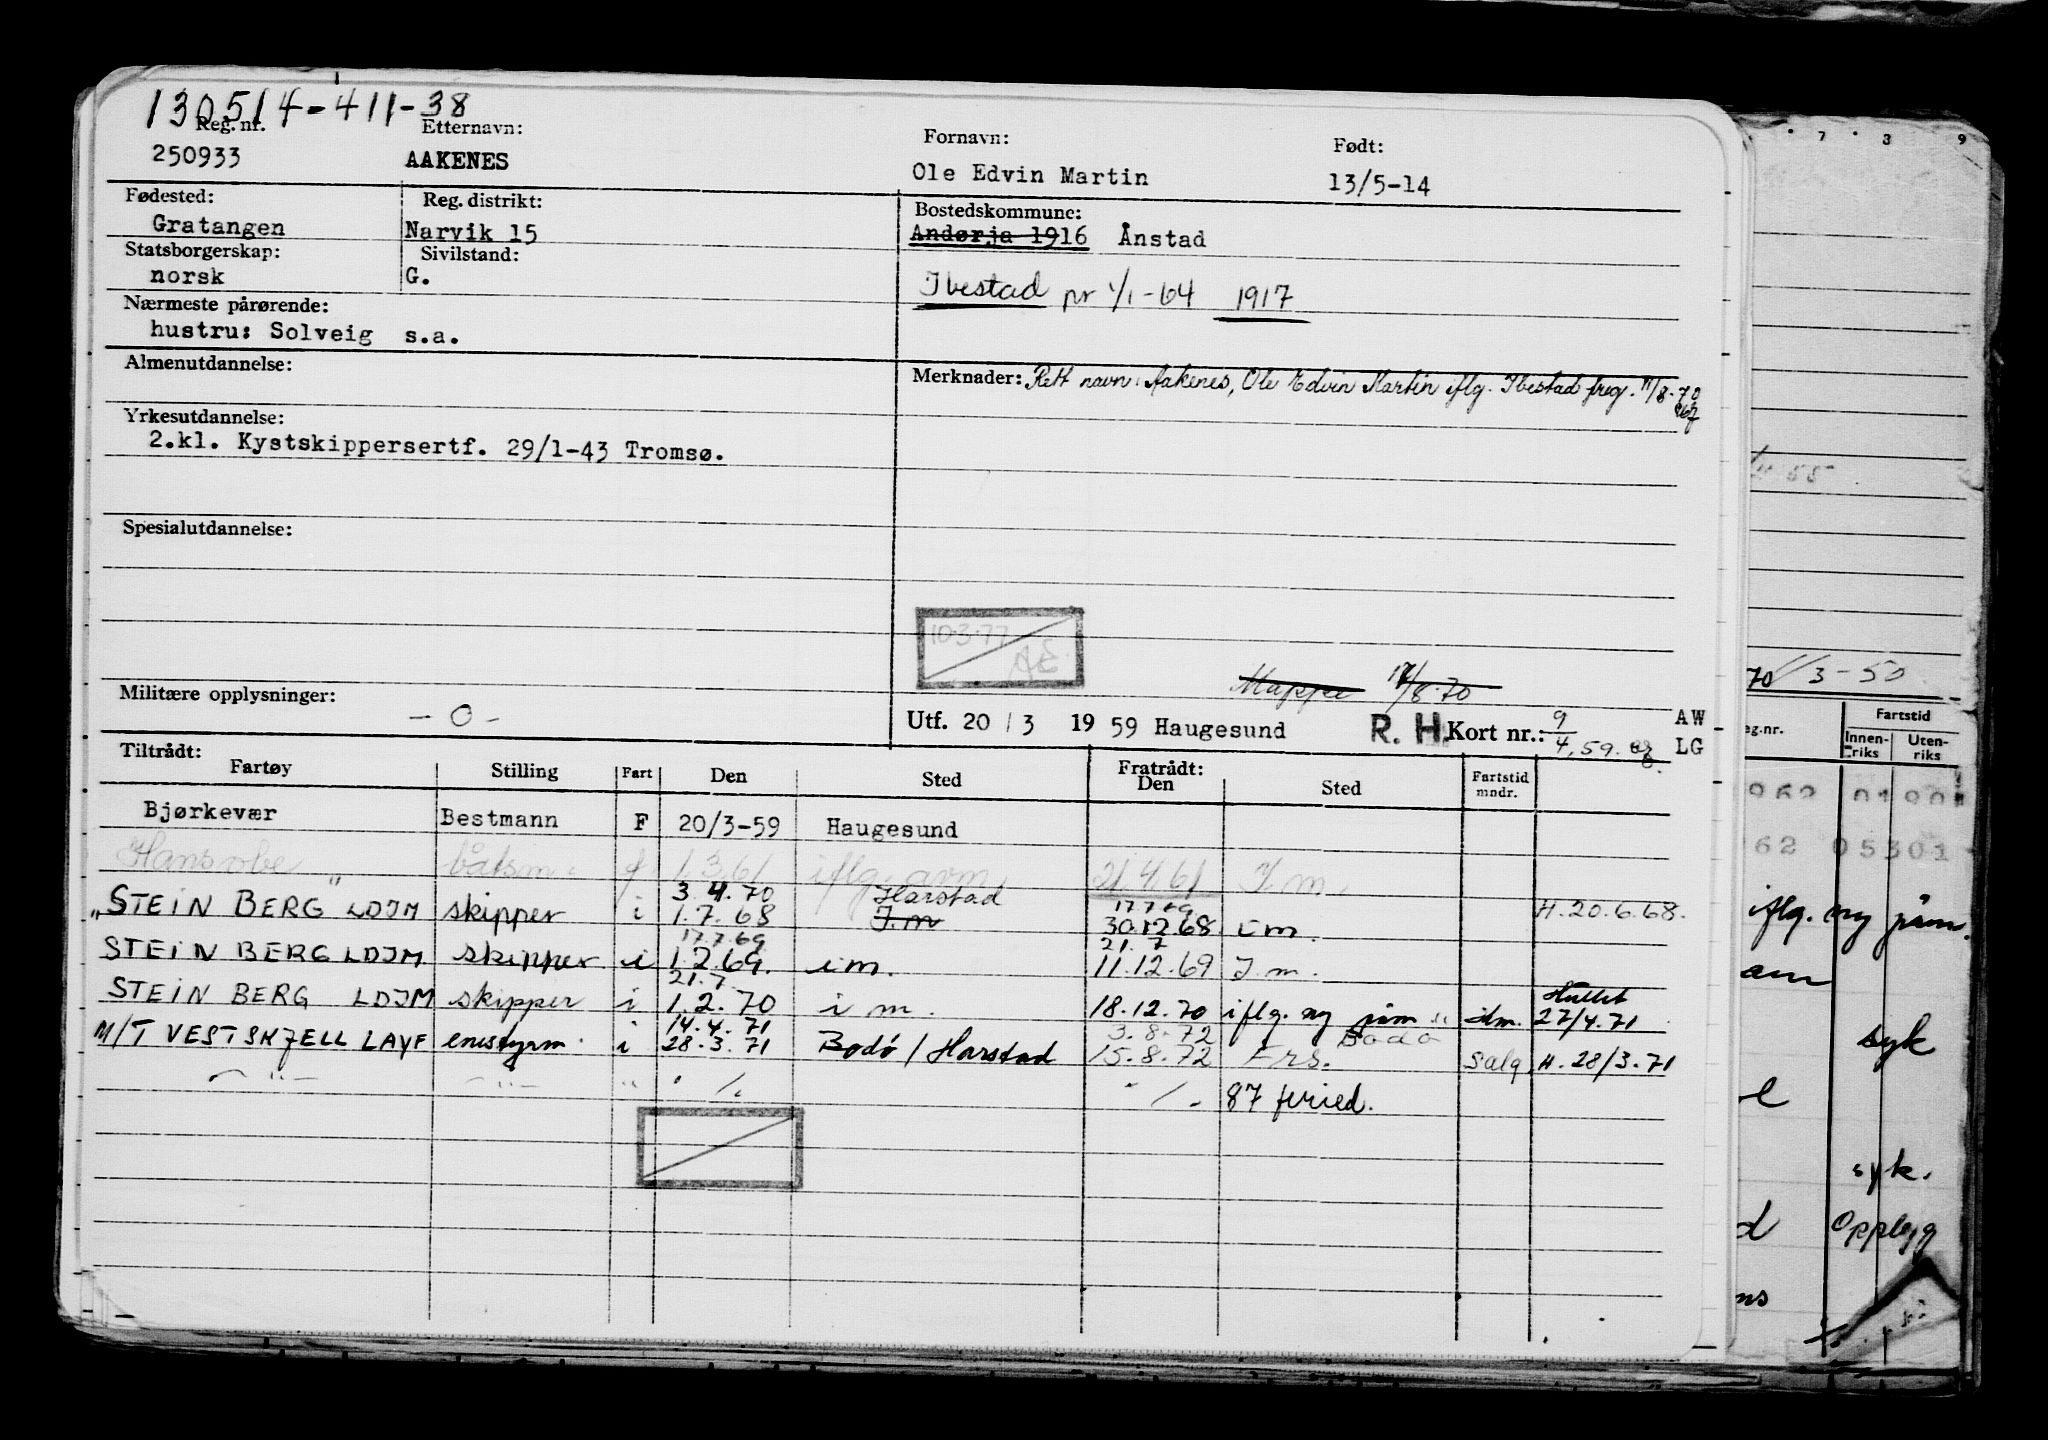 130514-411-38
Reg. nr. Etternavn: Fornavn: Født:
250933 AAKENES Ole Edvin Martin 13/5-14
Fødested: Reg. distrikt: Bostedskommune:
Gratangen Narvik 15 Andørja 1916 Ånstad
Statsborgerskap: Sivilstand:
norsk G. Ibestad pr 1/1-64 1917
Nærmeste pårørende:
hustru: Solveig s.a.
Almenutdannelse: Merknader: Rett navn: Aakenes, Ole Edvin Martin iflg. Ibestad freg. 11/8-70
Yrkesutdannelse:
2.kl. Kystskippersertf. 29/1-43 Tromsø.
Spesialutdannelse:
10.3.77
AE
Mappe 17/8.70
Militære opplysninger: - 0 -
Utf. 20/3 1959 Haugesund R. H. Kort nr.: 9/4.59. AW
LG
Tiltrådt: Fratrådt:
Fartøy Stilling Fart Den Sted Den Sted Fartstid mndr.
Bjørkevær Bestmann F 20/3-59 Haugesund
båtsm. f 1.3.61 iflg. avm 21.4.61 I m.
3.4.70 Harstad 17.7.69
"STEIN BERG" LDJM skipper i 1.7.68 I.m 30.12.68. I m. H.20.6.68.
17.7.69 21.7
STEIN BERG LDJM skipper i 1.2.69. i m. 11.12.69 I m.
21.7
STEIN BERG LDJM skipper i 1.2.70 i m. 18.12.70 iflg. ny påm. adm. 27/4.71
14.4.71 3.8.72 Bodø
M/T VESTSKJELL LAYF enestyrm. i 28.3.71 Bodø / Harstad 15.8.72 Frs. Salg. H. 28/3.71
- " - - " - " ./. ./. 87 feried.
7 8 9
4 55
70 1/3-50
eg.nr. Fartstid
Innen-riks Uten-riks
062 0190
62 05301
iflg. ny påm.
am
syk
e
syk.
d Opplegg
ns